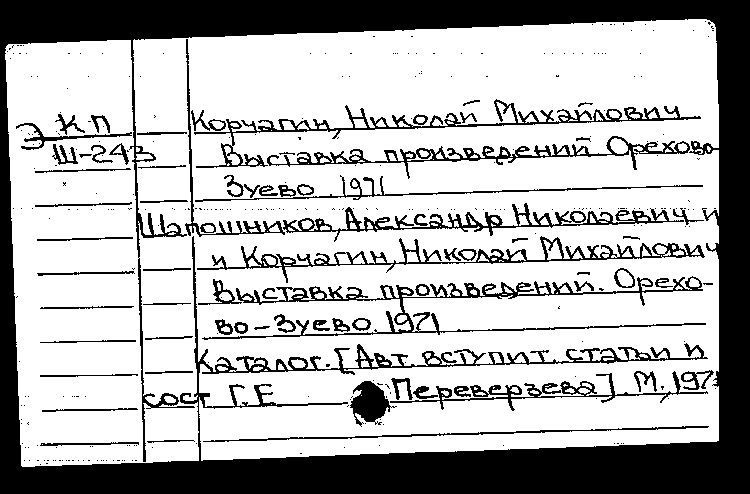 Э КП Корчагин, Николай Михайлович
Ш-243 Выставка произведений Орехово-
Зуево. 1971
Шапошников, Александр Николаевич и
и Корчагин, Николай Михайлович
Выставка произведений. Орехо-
во-Зуево. 1971
Каталог. [Авт. вступит. статьи и
сост Г.Е Переверзева]. М.,